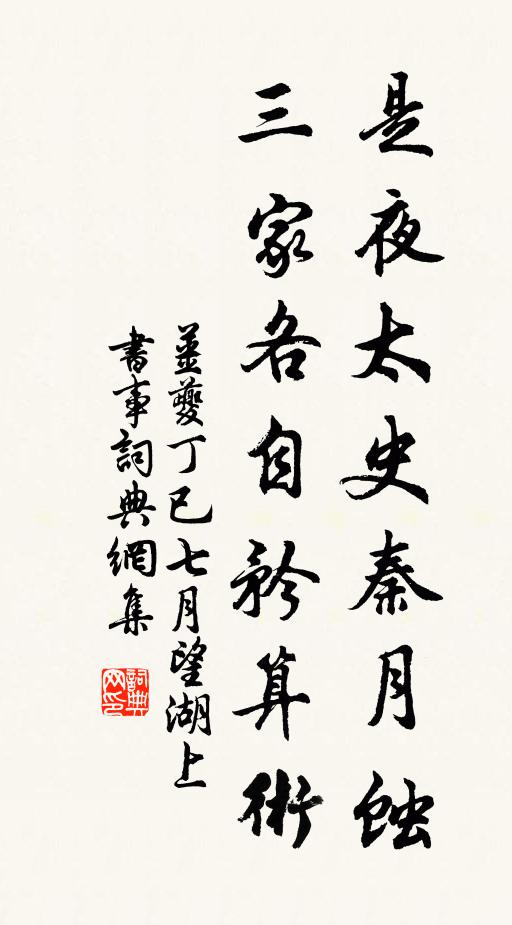 是夜太史秦月蝕
三家各自矜算術
姜夔丁巳七月望湖上
書事詞典網集
詞典网印